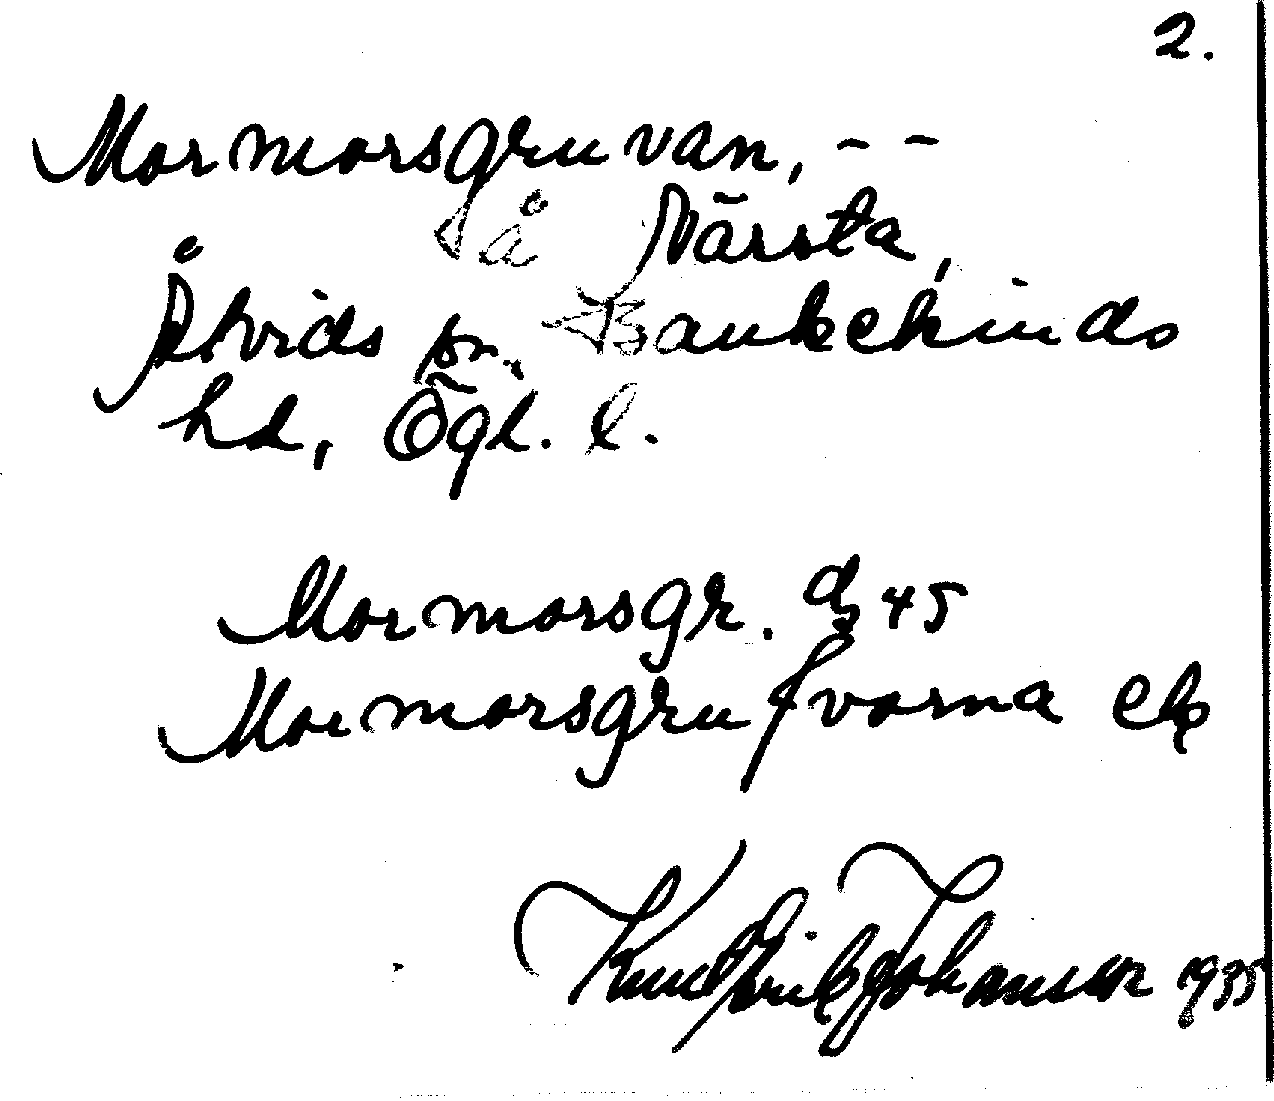 2.
Mormorsgruvan, - -
på Närsta,
Åtvids sn. Bankekinds
hd, Ögl. l.
Mormorsgr. 45
Mormorsgrufvorna ek
Knut Erik Johansson 1935